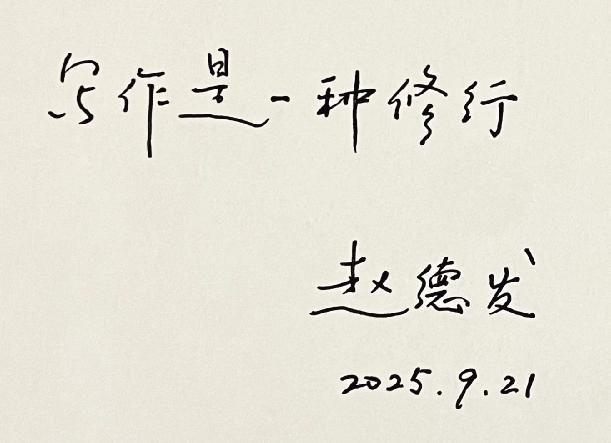 写作是一种修行
赵德发
2025.9.21